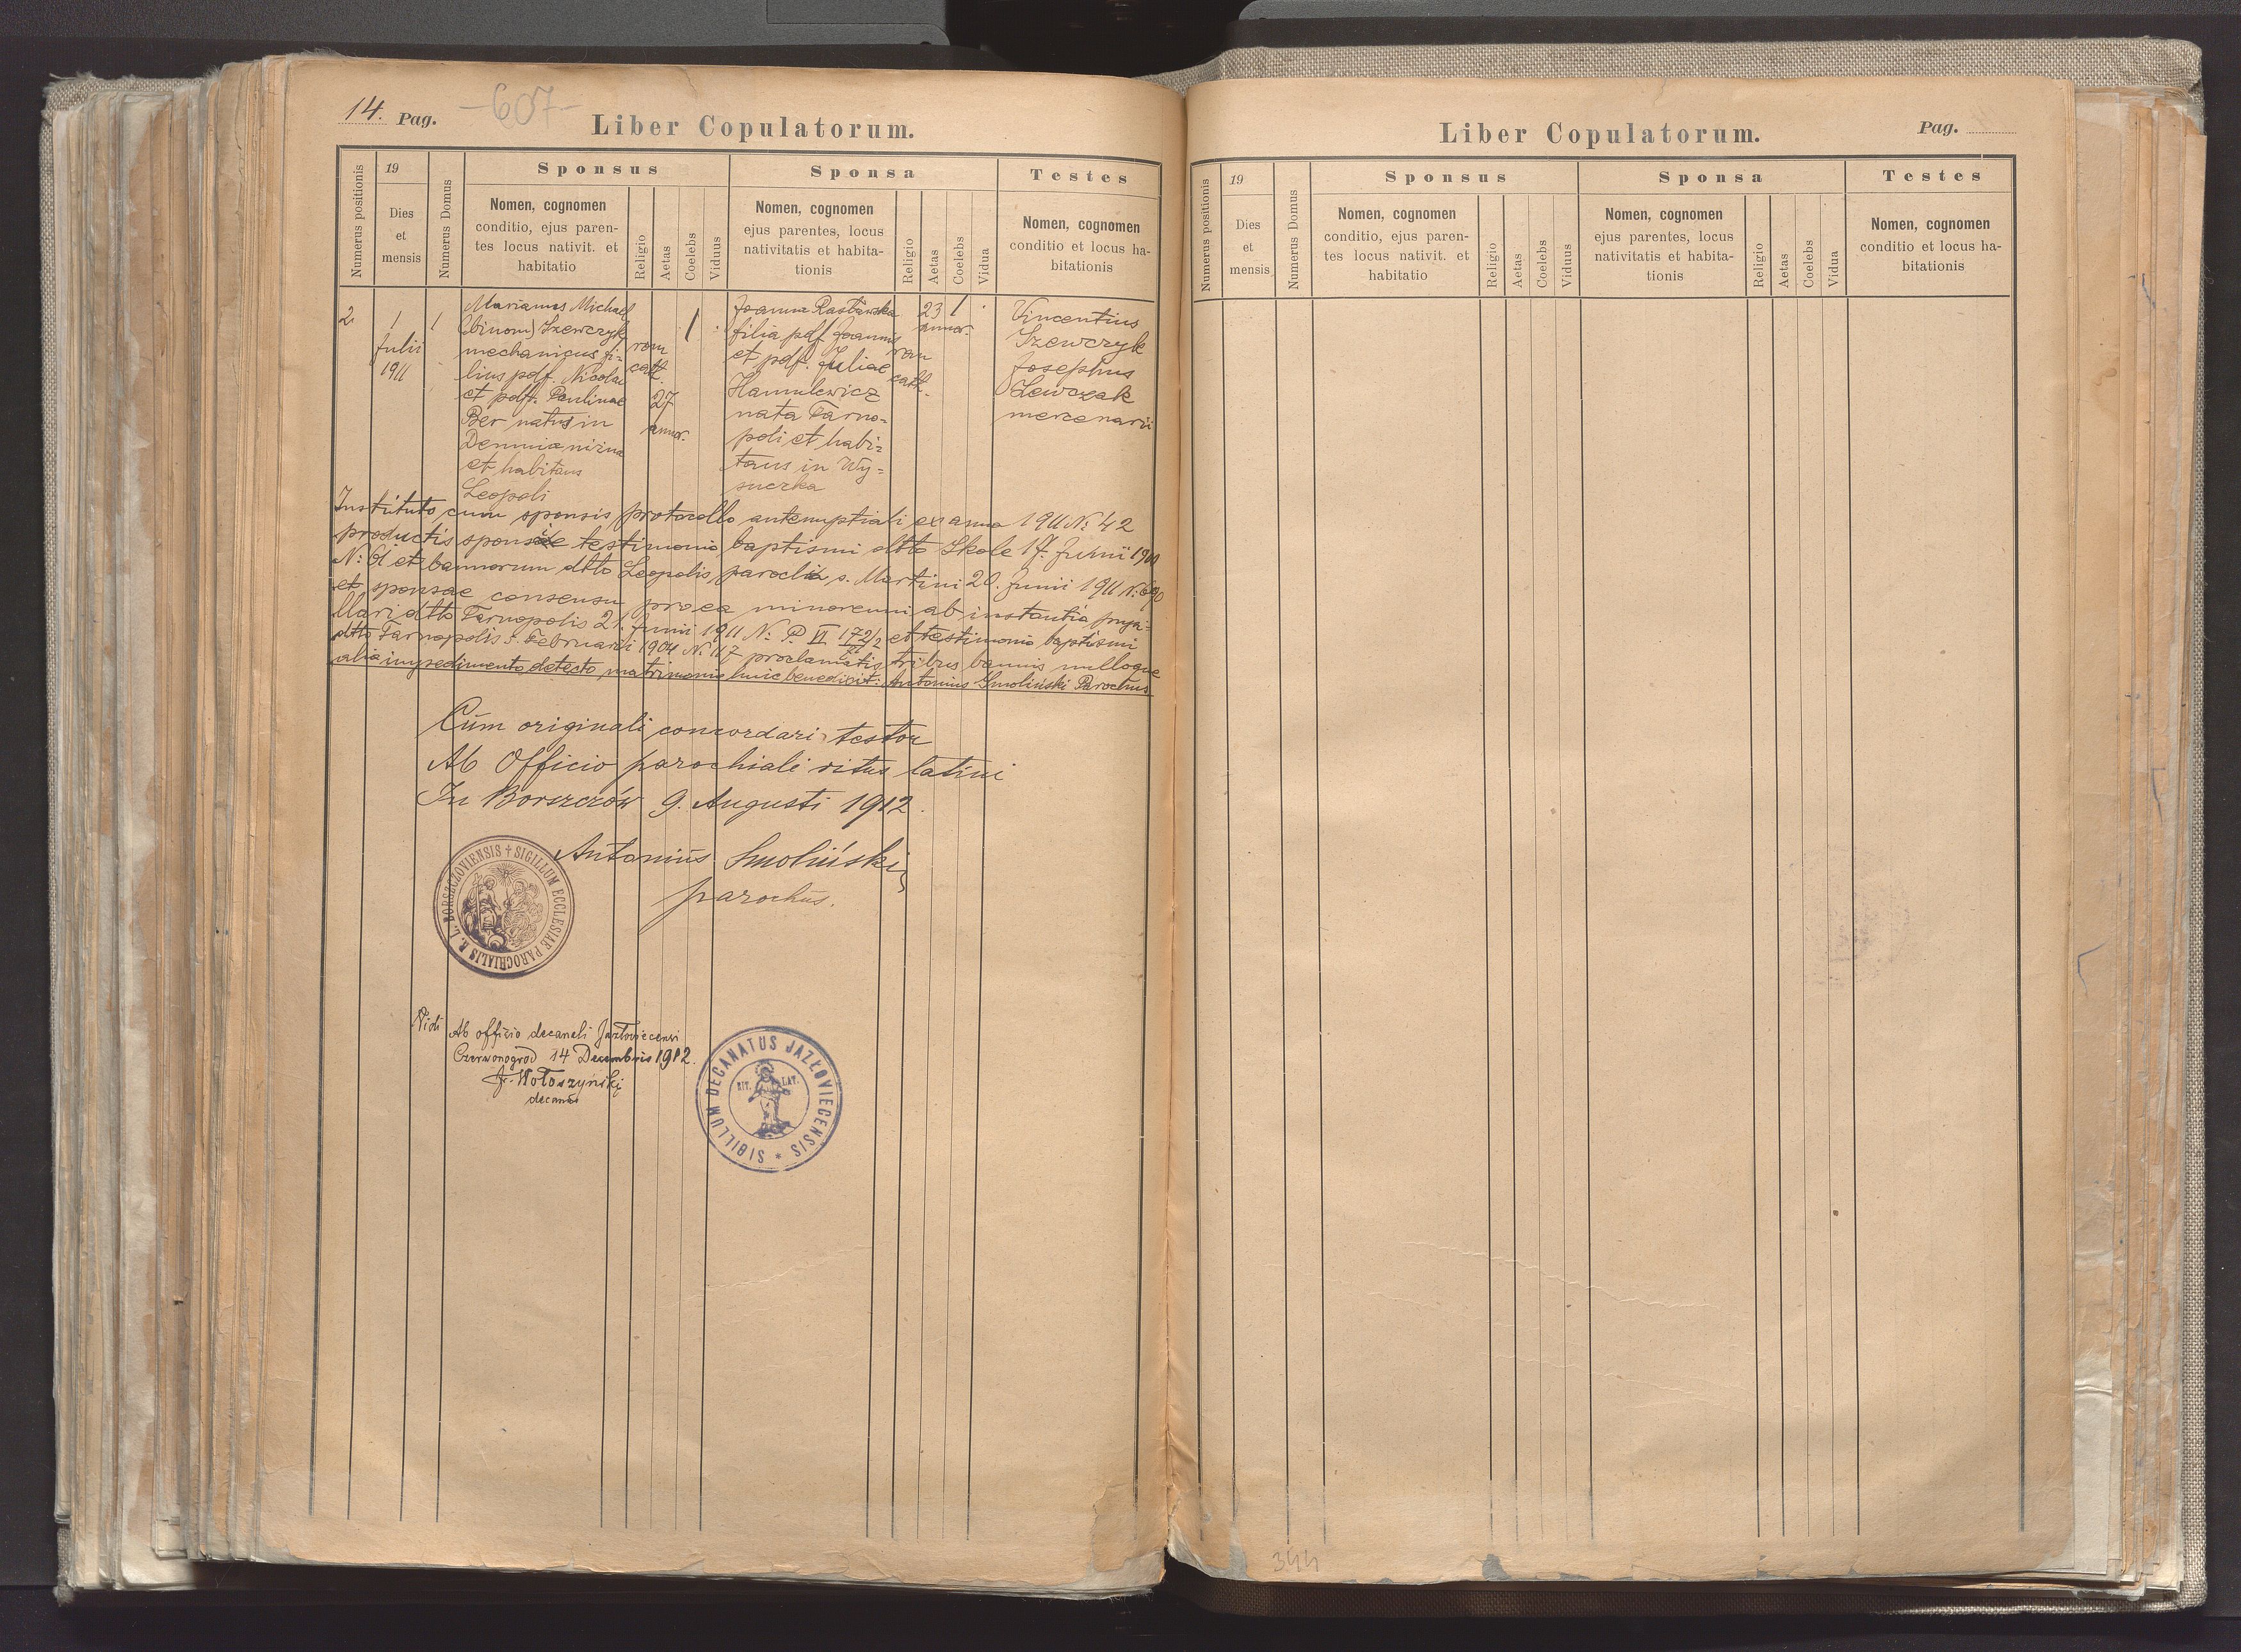 14. Pag.
-607-
Liber Copulatorum.
Numerus positionis
19
Dies
et
mensis
Numerus Domus
Sponsus
Nomen, cognomen
conditio, ejus paren-
tes locus nativit. et
habitatio
Religio
Aetas
Coelebs
Viduus
Sponsa
Nomen, cognomen
ejus parentes, locus
nativitatis et habita-
tionis
Religio
Aetas
Coelebs
Vidua
Testes
Nomen, cognomen
conditio et locus ha-
bitationis
2
1
Julii
1911
1
Marianus Michael
(binom) Szewczyk
mechanicus fi-
lius pdf. Nicolai
et pdft. Paulinae
Ber natus in
et habitans
Leopoli
rom
cath.
27
annor.
1
Joanna
filia pdf Joannis
et pdf. Juliae
Hamulewicz
nata Tarno-
poli et habi-
tans in Wy-
suczka
rom
cath.
23
annor.
1
Vincentius
Szewczyk
Josephus
Lewczak
mercenarii
Instituto cum sponsis protocollo antenuptiali ex anno 1911 N: 42
productis sponsi testimonio baptismi dtto Skole 17. Junii
N: 61 et bannorum dtto Leopolis parochia s. Martini 20. Junii 1911 N: 690
et sponsae consensu pro ea minorenni ab instantia pupi-
llari dtto Tarnopolis 21. Junii 1911 N: P VI 172/2 et testimonio baptismi
dtto Tarnopolis 5. Februarii 1904 N. 117 proclamatis tribus bannis nulloque
alio impedimento detecto matrimonio huic benedixit: Antonius Smoliński Parochus
Cum originali concordari testor
Ab Officio parochiali ritus latini
In Borszczów 9. Augusti 1912.
Antonius Smoliński
parochus.
SIGILLUM ECCLESIAE PAROCHIALIS R. L. BORSZCZOVIENSIS
Vidi
Ab officio decanali Jazłoviecensi
Czerwonogrod 14 Decembris 1912.
Fr. Wołoszyński
decanus
SIGILLUM DECANATUS JAZŁOVIECENSIS *
RIT. LAT.
Liber Copulatorum.
Pag.
Numerus positionis
19
Dies
et
mensis
Numerus Domus
Sponsus
Nomen, cognomen
conditio, ejus paren-
tes locus nativit. et
habitatio
Religio
Aetas
Coelebs
Viduus
Sponsa
Nomen, cognomen
ejus parentes, locus
nativitatis et habita-
tionis
Religio
Aetas
Coelebs
Vidua
Testes
Nomen, cognomen
conditio et locus ha-
bitationis
344